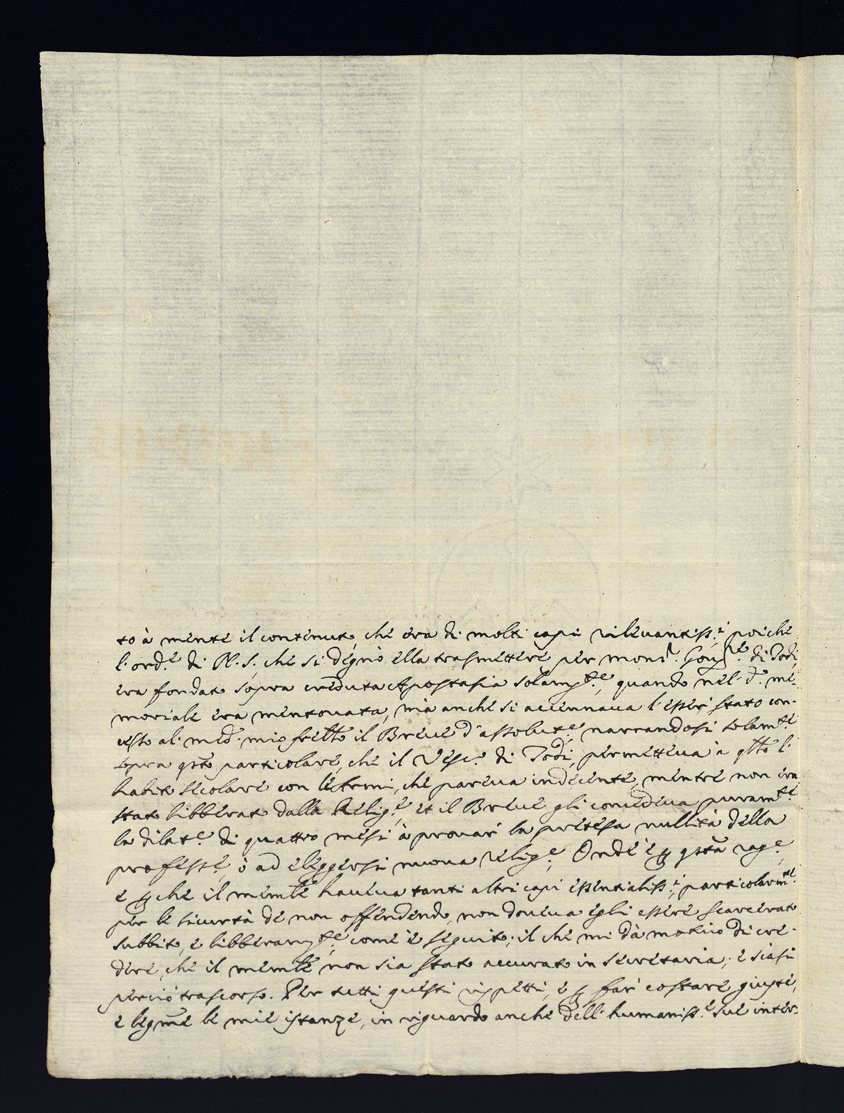 to à mente il contenuto che era di molti capi rilevantiss.i poiche
l'ord.e di N. S. che si degnò ella trasmettere per mons.r di Todi,
era fondato sopra creduta Apostasia solam.te, quando nel d.o me-
moriale era mentovata, mà anche si accennava l'essere stato con-
cesso al med.o mio frello il Breve d'assolut.e narrandosi solam.te
sopra q̃sto particolare, che il Vesc.o di Todi, permetteva à q̃llo l'
habito secolare con termini, che pareva indecente, mentre non era
stato libberato dalla Relig.e, et il Breve gli concedeva puram.te
la dilat.e di quattro mesi à provar la pretesa nullità della
profess.e, ò ad eleggersi nuova relig.e Onde e ꝑ q̃sta rag.e,
e ꝑche il mem.le haveva tanti altri capi essentialiss.i, particolarm.te
per le sicurtà de non offendendo, non doveva egli essere scarcerato
subbito, e libberam.te, come è seguito; il che mi dà motivo di cre-
dere, che il mem.le non sia stato accurato in secretaria, e siasi
perciò trascorso. Per tutti questi rispetti, e ꝑ far costare giuste,
e legme le mie istanze, in riguardo anche dell'humaniss.e sue inter-